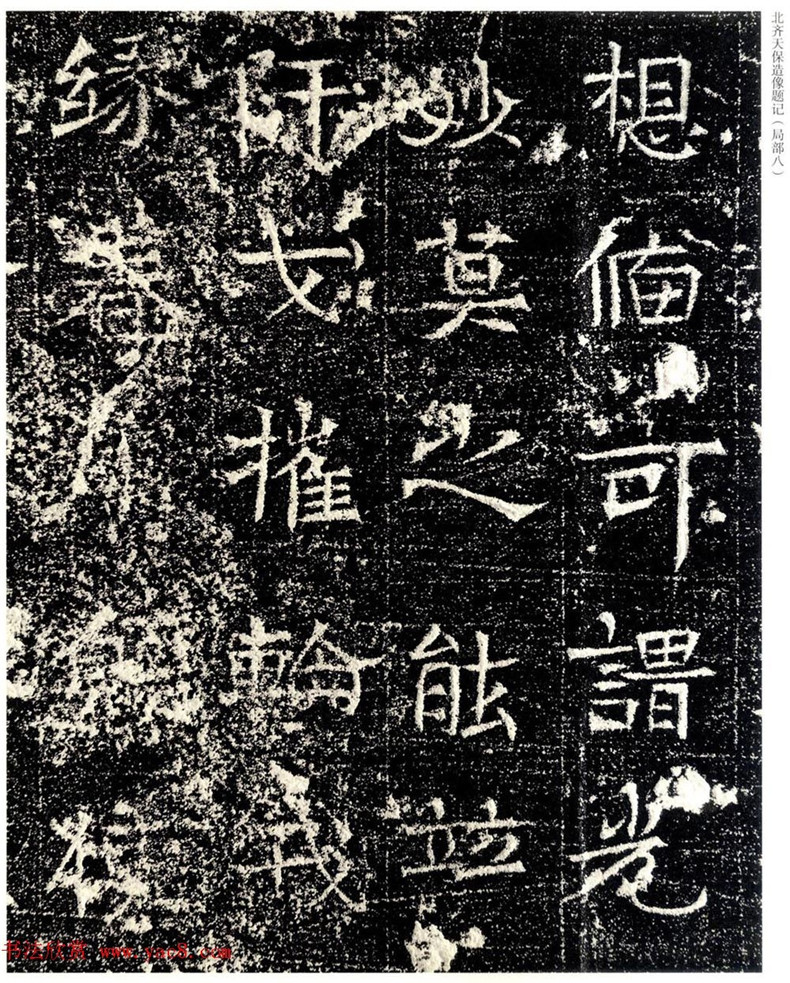 北齐天保造像题记（局部八）
想俻可謂光
妙莫之能並
牙戈摧輪我
緣
书法欣赏 www.yac8.com